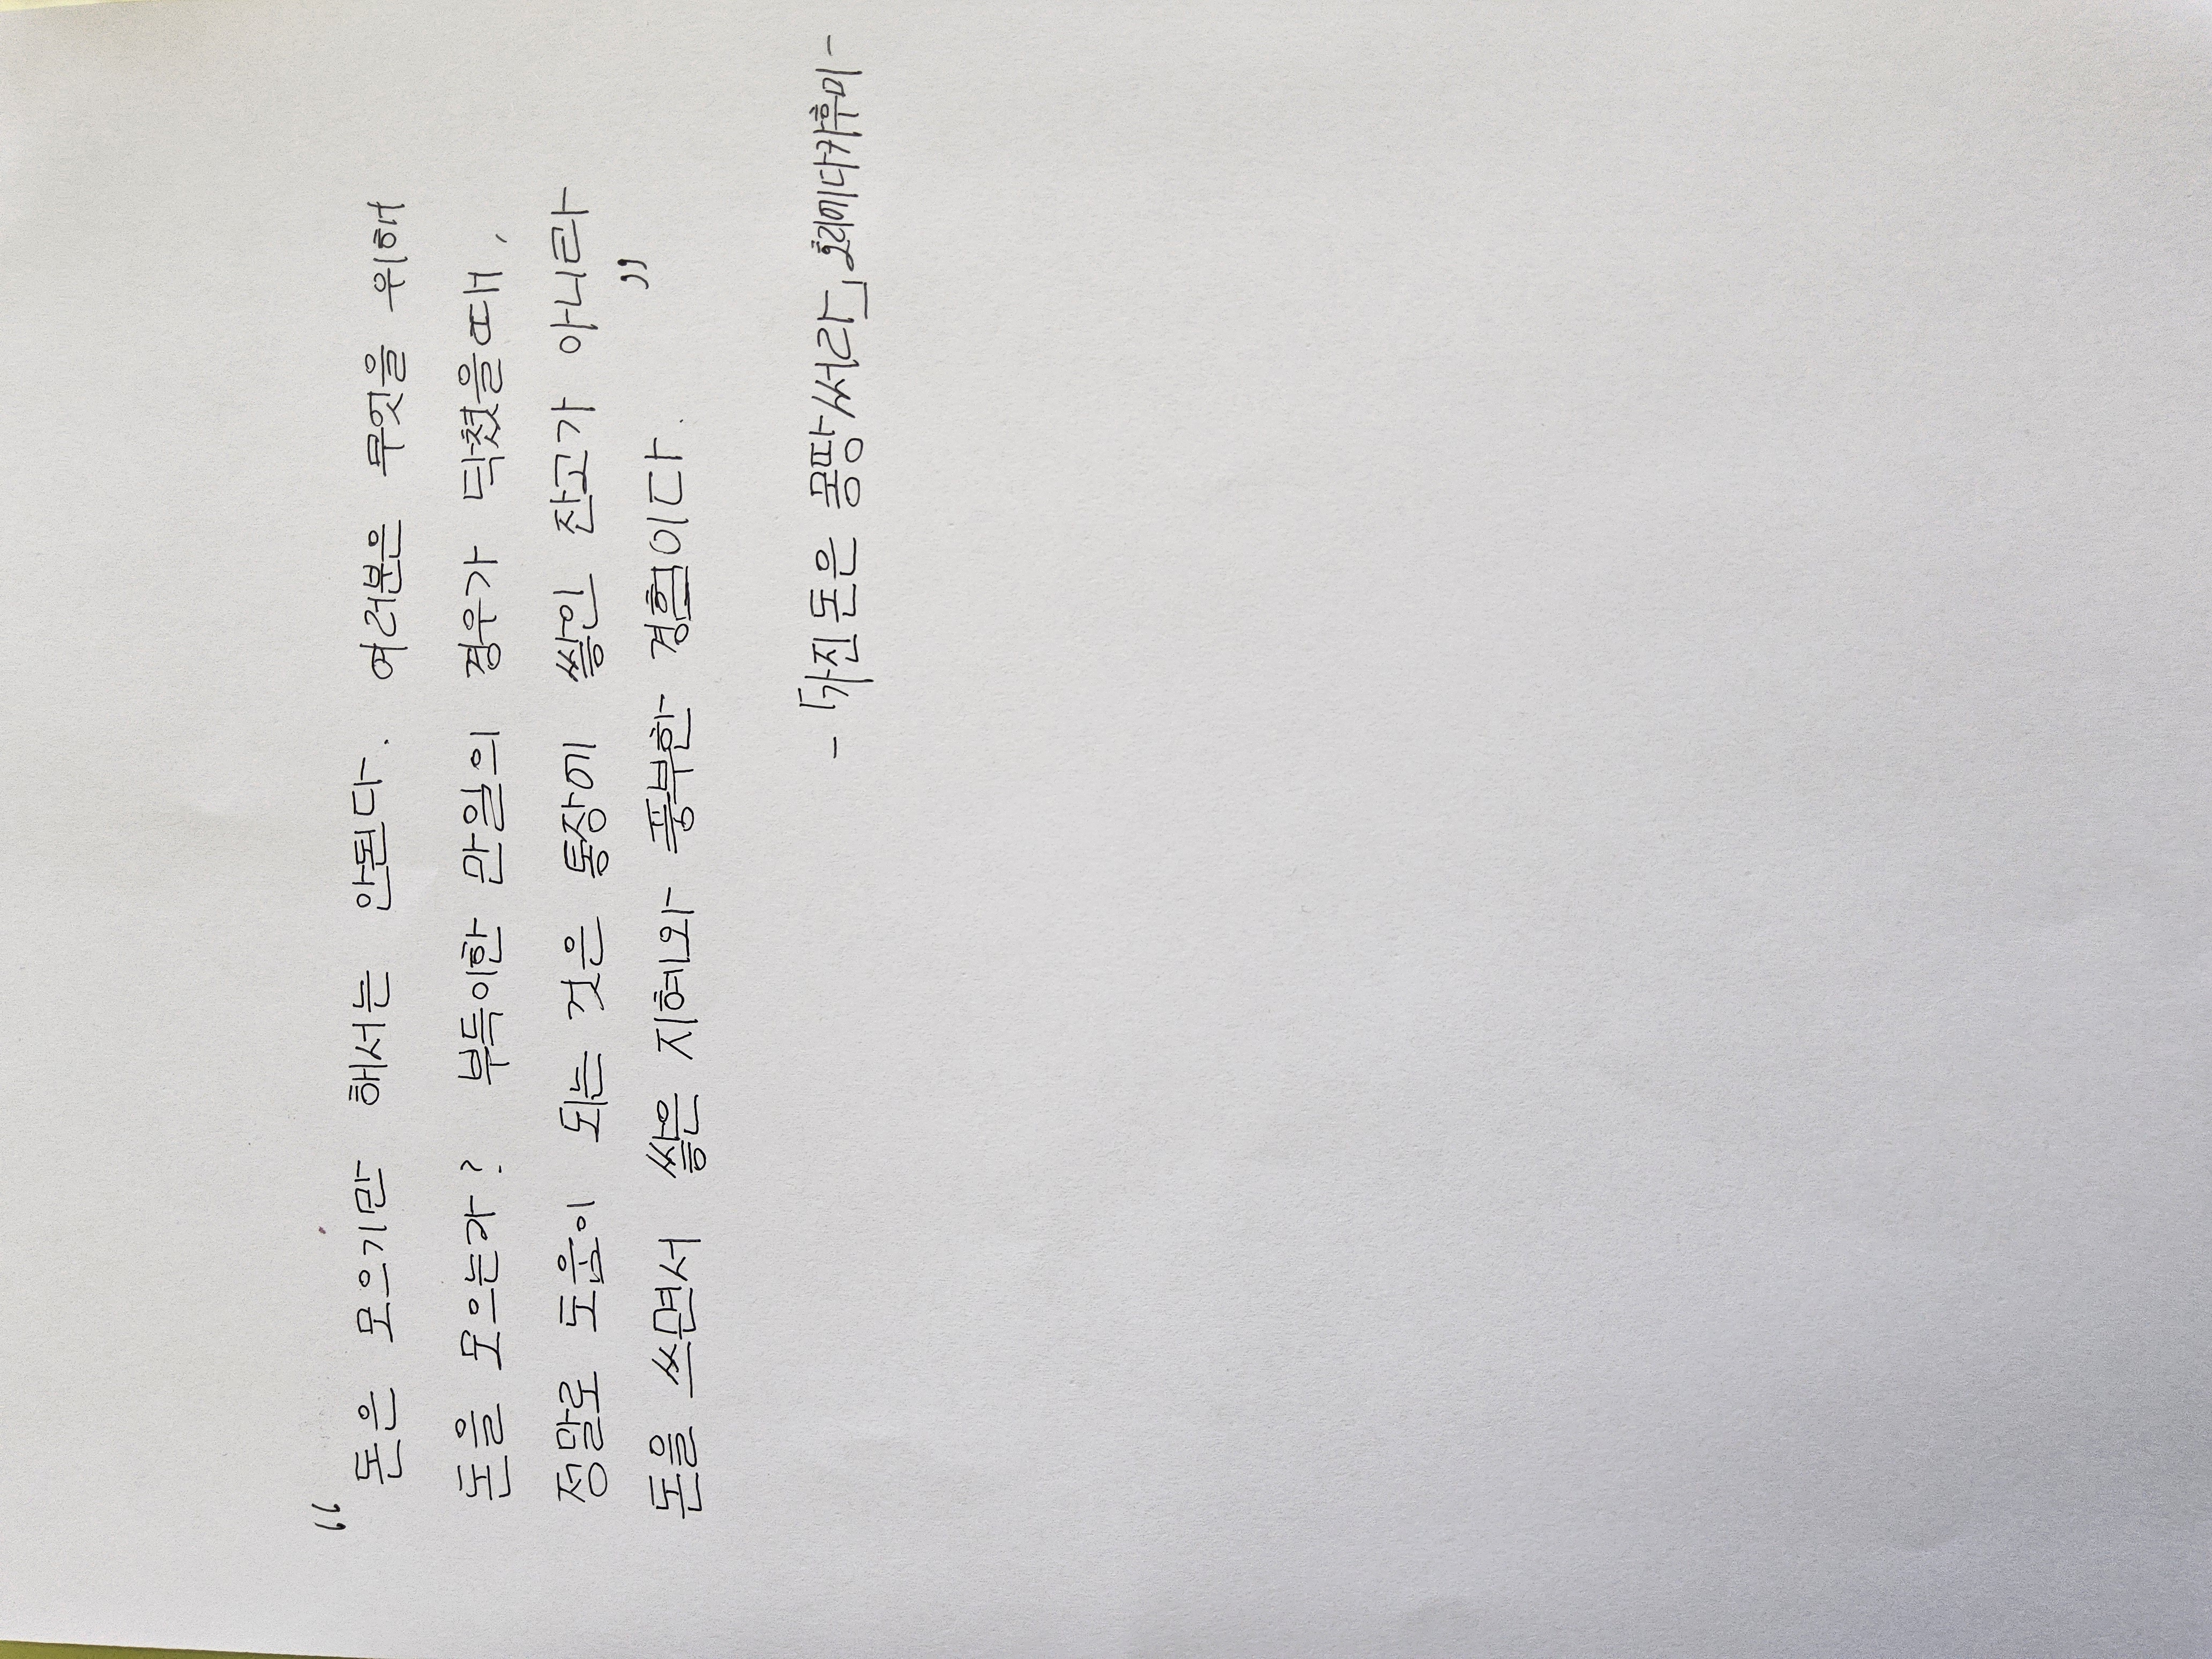 “ 돈은 모으기만 해서는 안된다. 여러분은 무엇을 위해
돈을 모으는가? 부득이한 만일의 경우가 닥쳤을때,
정말로 도움이 되는 것은 통장에 쌓인 잔고가 아니라
돈을 쓰면서 쌓은 지혜와 풍부한 경험이다. ”
- 「가진 돈은 몽땅 써라」 호리에 다카후미 -